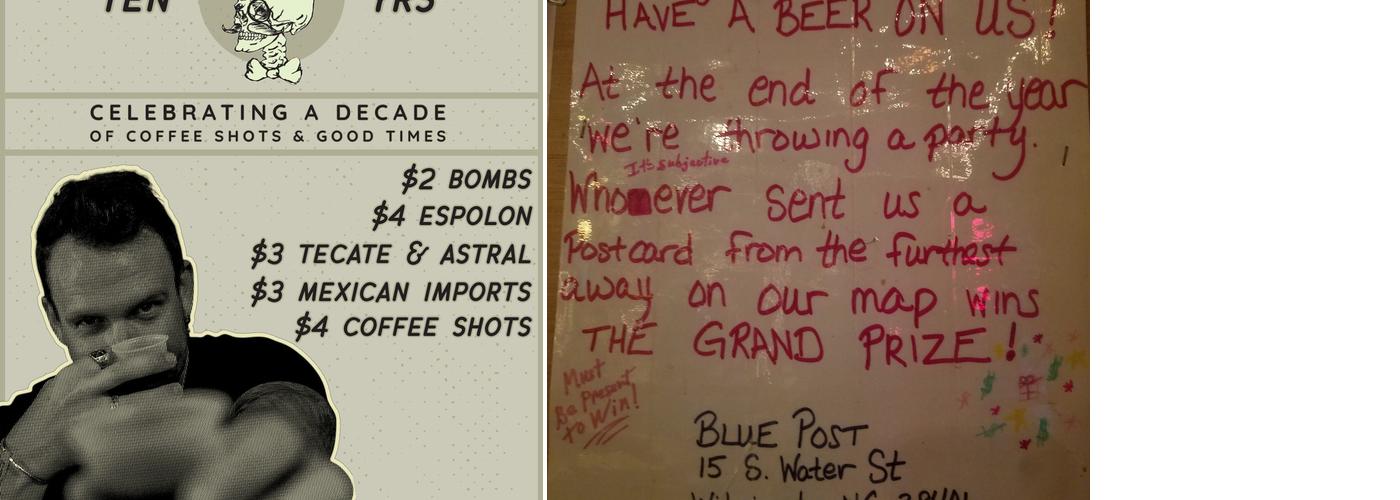 TEN YRS
CELEBRATING A DECADE
OF COFFEE SHOTS & GOOD TIMES
$2 BOMBS
$4 ESPOLON
$3 TECATE & ASTRAL
$3 MEXICAN IMPORTS
$4 COFFEE SHOTS
HAVE A BEER ON US!
At the end of the year
We're throwing a party.
It's subjective
Whomever sent us a
Postcard from the furthest
away on our map wins
THE GRAND PRIZE!
Must
Be Present
to Win!
BLUE POST
15 S. Water St